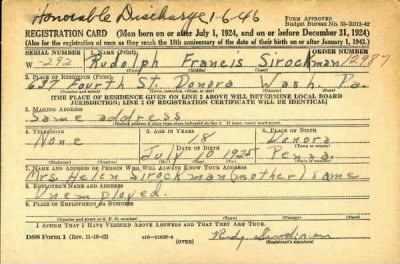 Honorable Discharge 1-6-46
FORM APPROVED
Budget Bureau No. 33-R012-42
REGISTRATION CARD (Men born on or after July 1, 1924, and on or before December 31, 1924)
(Also for the registration of men as they reach the 18th anniversary of the date of their birth on or after January 1, 1943.)
SERIAL NUMBER 1. NAME (Print) ORDER NUMBER
W -292 Rudolph Francis Sirockman 12987
(First) (Middle) (Last)
2. PLACE OF RESIDENCE (Print)
637 Fourth St. Donora Wash. Pa.
(Number and street) (Town, township, village, or city) (County) (State)
[THE PLACE OF RESIDENCE GIVEN ON LINE 2 ABOVE WILL DETERMINE LOCAL BOARD
JURISDICTION; LINE 2 OF REGISTRATION CERTIFICATE WILL BE IDENTICAL]
3. MAILING ADDRESS
Same address
[Mailing address if other than place indicated on line 2. If same, insert word same]
4. TELEPHONE 5. AGE IN YEARS 6. PLACE OF BIRTH
None 18 Donora
DATE OF BIRTH (Town or county)
July 10 1925 Penna.
(Exchange) (Number) (Mo.) (Day) (Yr.) (State or country)
7. NAME AND ADDRESS OF PERSON WHO WILL ALWAYS KNOW YOUR ADDRESS
Mrs Helen Sirockman (mother) same
8. EMPLOYER'S NAME AND ADDRESS
Unemployed.
9. PLACE OF EMPLOYMENT OR BUSINESS
(Number and street or R. F. D. number) (Town) (County) (State)
I AFFIRM THAT I HAVE VERIFIED ABOVE ANSWERS AND THAT THEY ARE TRUE.
DSS Form 1 (Rev. 11-16-42) (OVER) Rudy Sirockman
(Registrant's signature)